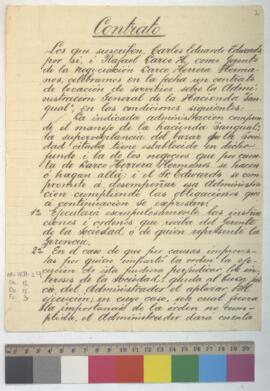 2
Contrato
Los que suscriben, Carlos Eduardo Edwards
por sí, i Rafael Larco H, como Gerente
de la Negociación Larco Herrera Herma-
nos, celebramos en la fecha un contrato
de locación de servicios sobre la Admi-
nistración General de la Hacienda San-
gual, en las condiciones siguientes:
La indicada administración compren-
de el manejo de la hacienda Sangual;
la supervigilancia del bazar que la Socie-
dad citada tiene establecido en dicho
fundo, i la de los negocios que por cuen-
ta de Larco Herrera Hermanos se hacen
ó hagan allá; i el Sr. Edwards se com-
promete á desempeñar esa Adminis-
tración cumpliendo las obligaciones que
á continuación se expresan:
1a. Ejecutará escrupulosamente las instruc-
ciones i órdenes que reciba del Gerente
de la Sociedad ó de quien represente la
Gerencia.
2a. En el caso de que por causas imprevis-
tas por quien impartió la orden la eje-
cución de ésta pudiera perjudicar los in-
tereses de la Sociedad, queda al buen jui-
cio del Administrador el aplazar su
ejecución; en cuyo caso, sea cual fuere
la importancia de la orden no cum-
plida, el Administrador dará cuenta